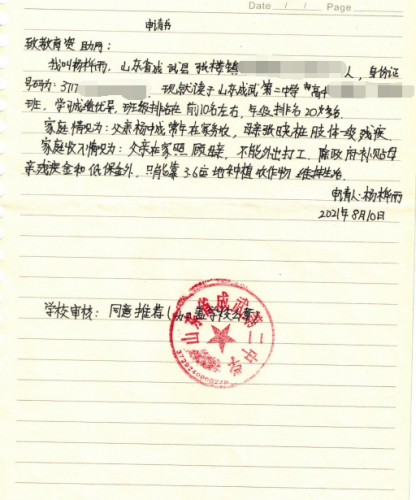 Date / / Page
申请书
致教育资助局：
我叫杨桦雨，山东省成武县张楼镇 人，身份证
号码为：3717 ，现就读于山东成武第二中学高
班，学习成绩优异，班级排名在前10名左右，年级排名20
家庭情况为：父亲杨中成常年在家务农，母亲张晓桂肢体一级残疾
家庭收入情况为：父亲在家照顾母亲，不能外出打工，除政府补贴母
亲残疾金和低保金外，只能靠3.6亩地种植农作物维持生活。
申请人：杨桦雨
2021年8月10日
学校审核：同意推荐（加盖学校公章）
山东省成武第二中学